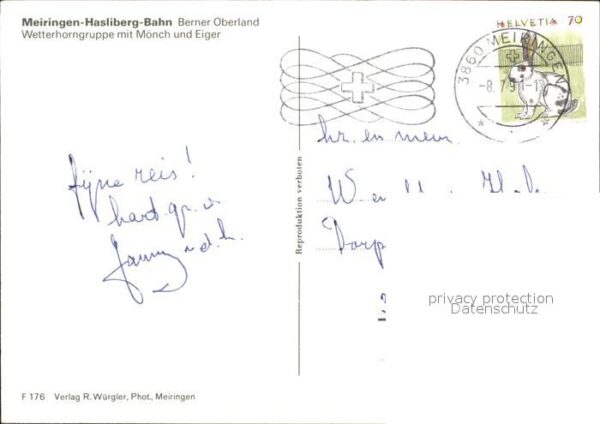 Meiringen-Hasliberg-Bahn Berner Oberland
Wetterhorngruppe mit Mönch und Eiger
HELVETIA 70
3860 MEIRINGEN
-8.7.91-1
fijne reis!
hart. gr. v
hr. en mevr.
Dorp
Reproduktion verboten
privacy protection
Datenschutz
F 176 Verlag R. Würgler, Phot., Meiringen